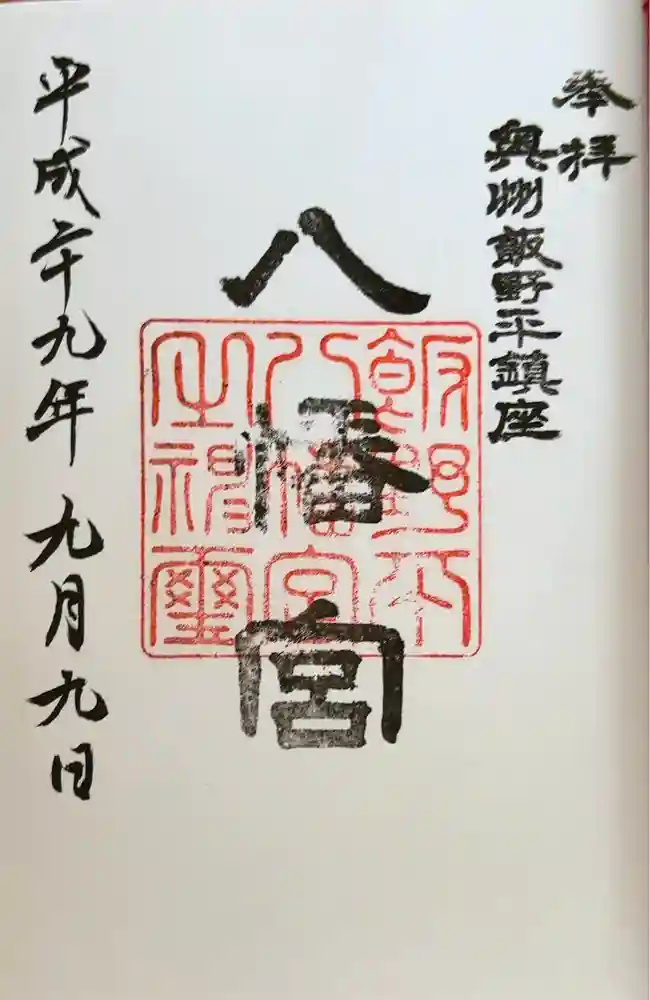 奉拝
奥州飯野平鎮座
八幡宮
飯野平
八幡宮
之神璽
平成二十九年九月九日